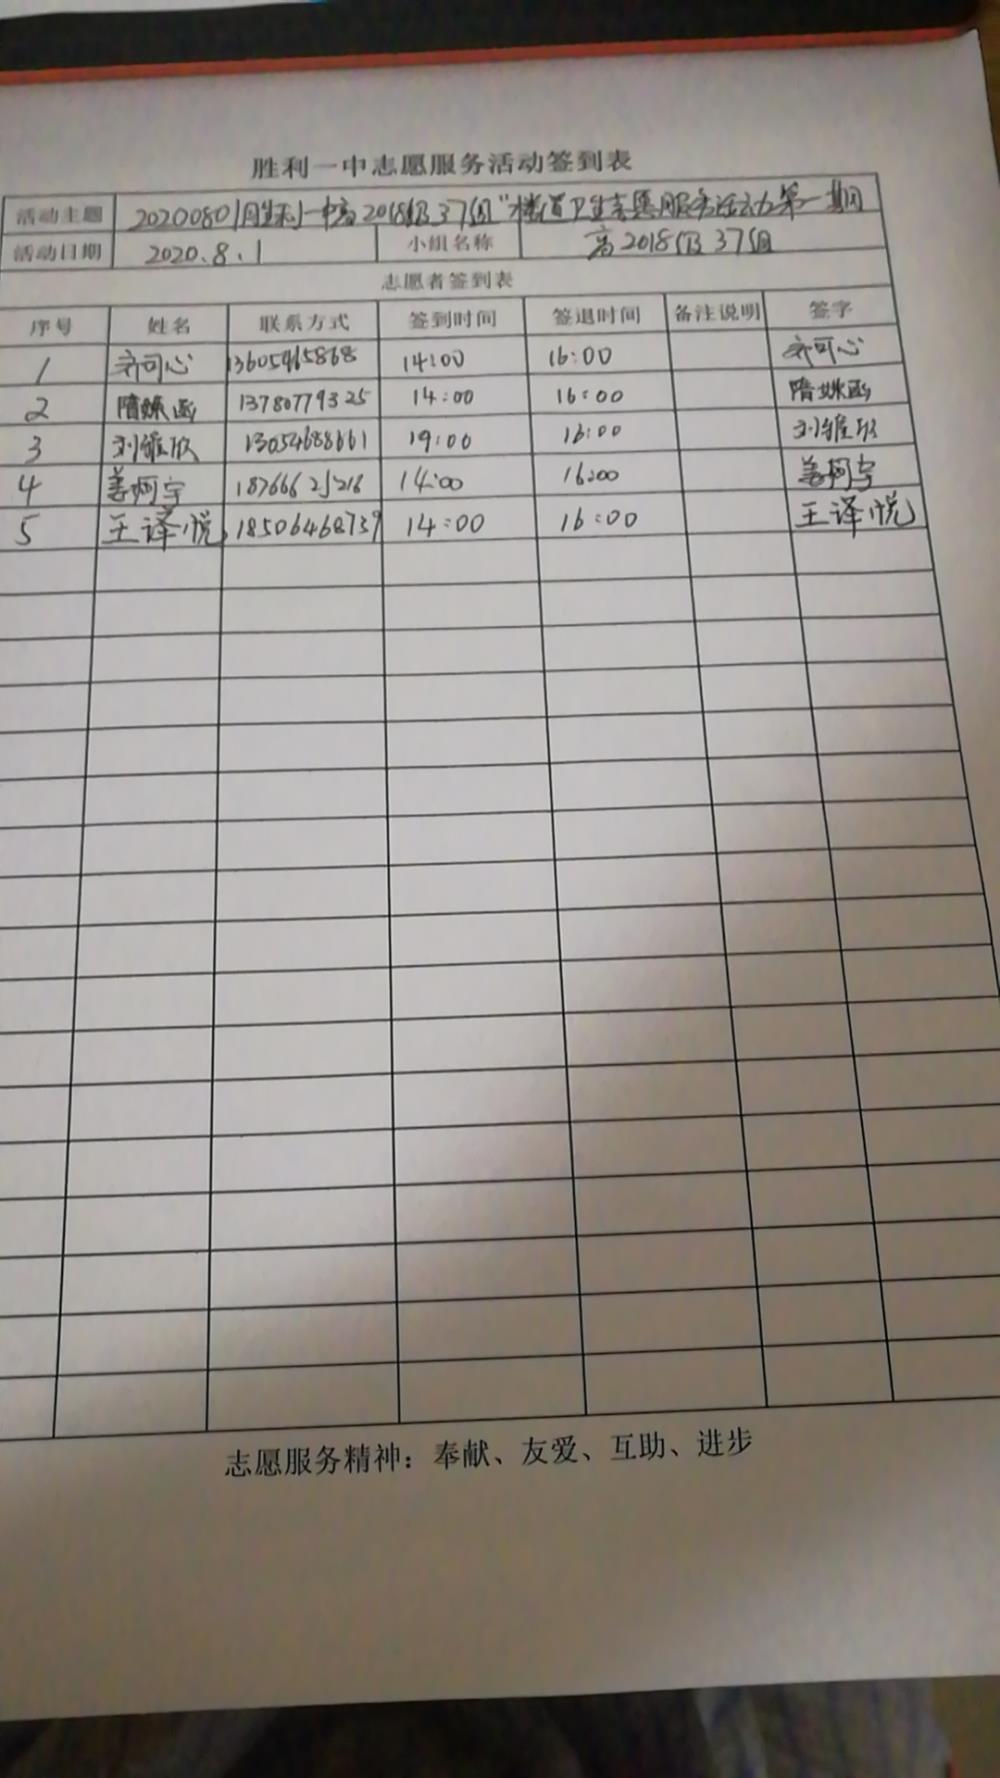 胜利一中志愿服务活动签到表
活动主题 20200801胜利一中高2018级37组"楼道卫生志愿服务活动第一期
活动日期 2020.8.1 小组名称 高2018级37组
志愿者签到表
序号 姓名 联系方式 签到时间 签退时间 备注说明 签字
1 齐可心 13605465868 14:00 16:00 齐可心
2 隋姝函 13780779325 14:00 16:00 隋姝函
3 刘维欣 13054688661 19:00 16:00 刘维欣
4 姜柯宇 18766625216 14:00 16:00 姜柯宇
5 王译悦 18506468739 14:00 16:00 王译悦
志愿服务精神：奉献、友爱、互助、进步